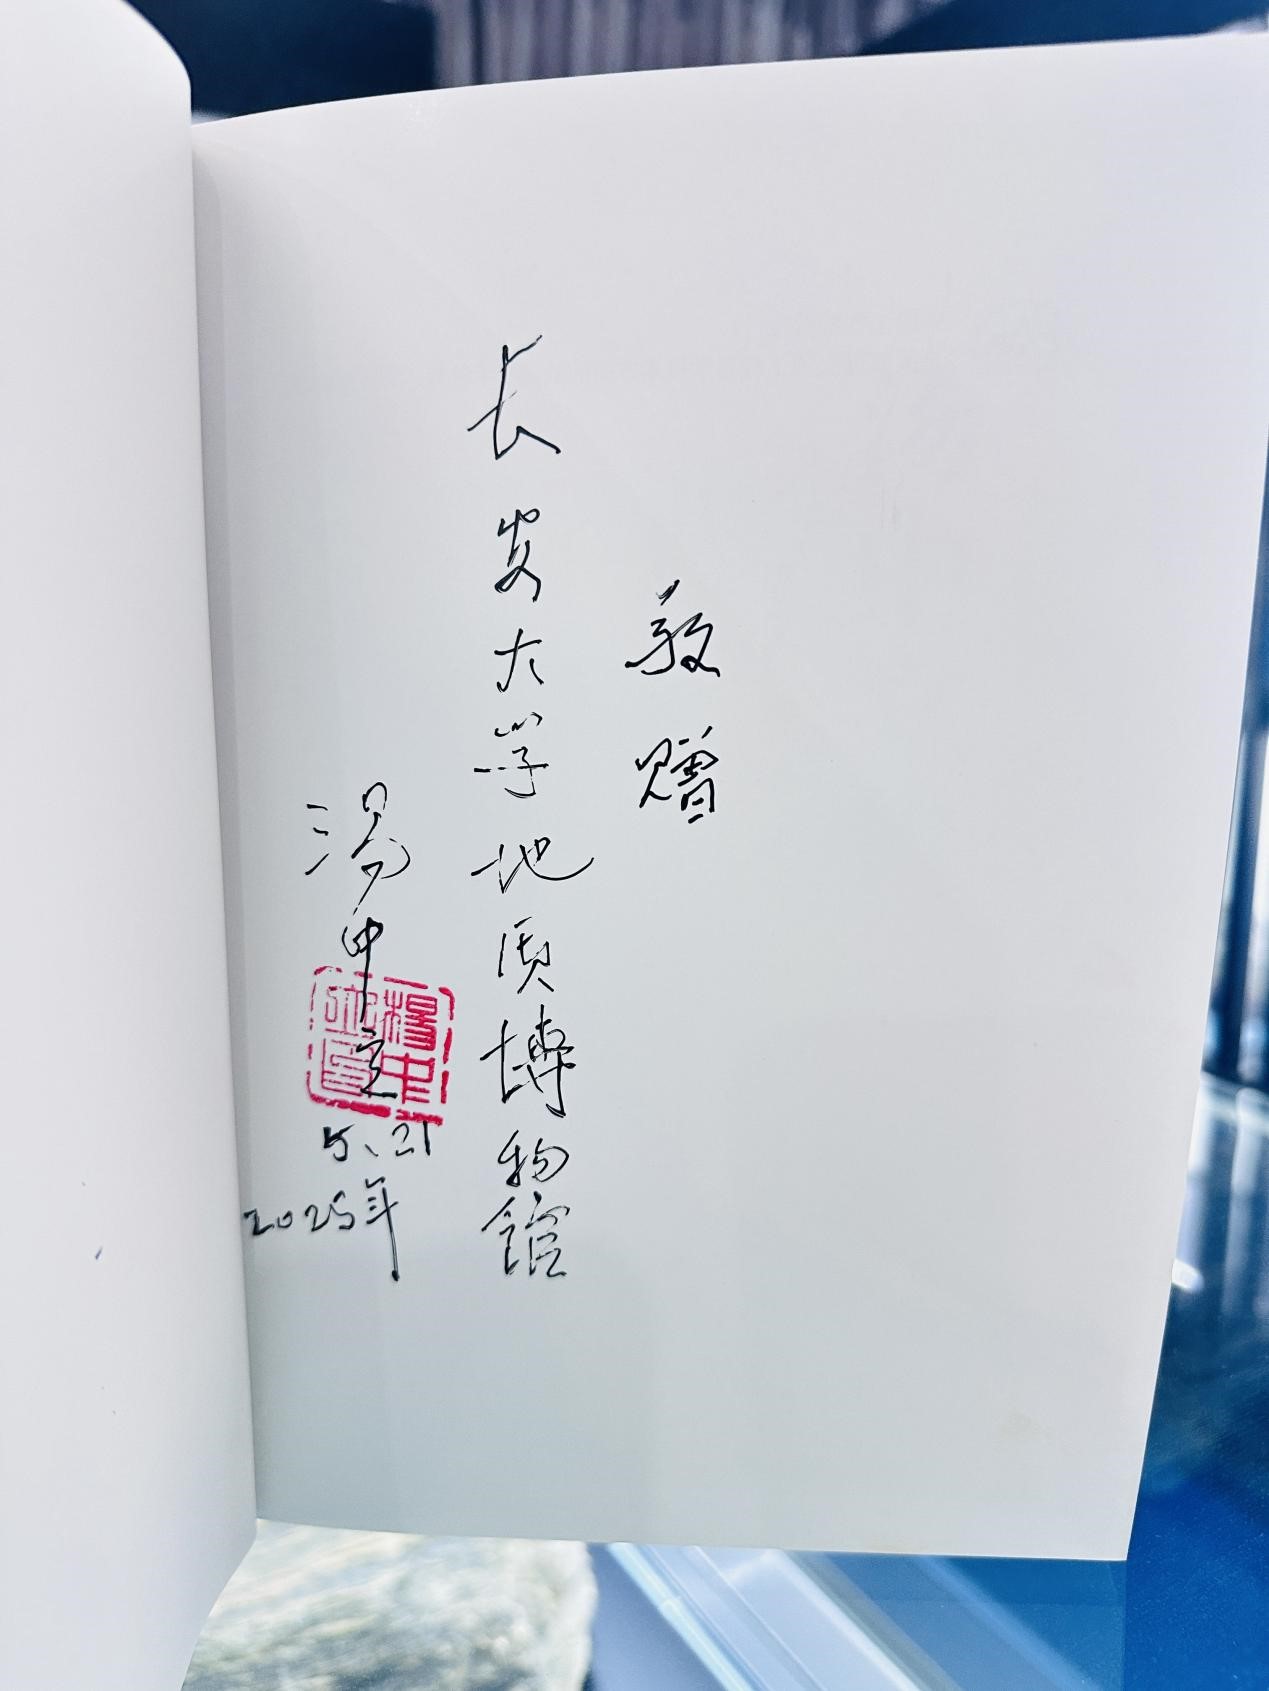 敬赠
长安大学地质博物馆
杨中立
5、21
2025年
杨中立印